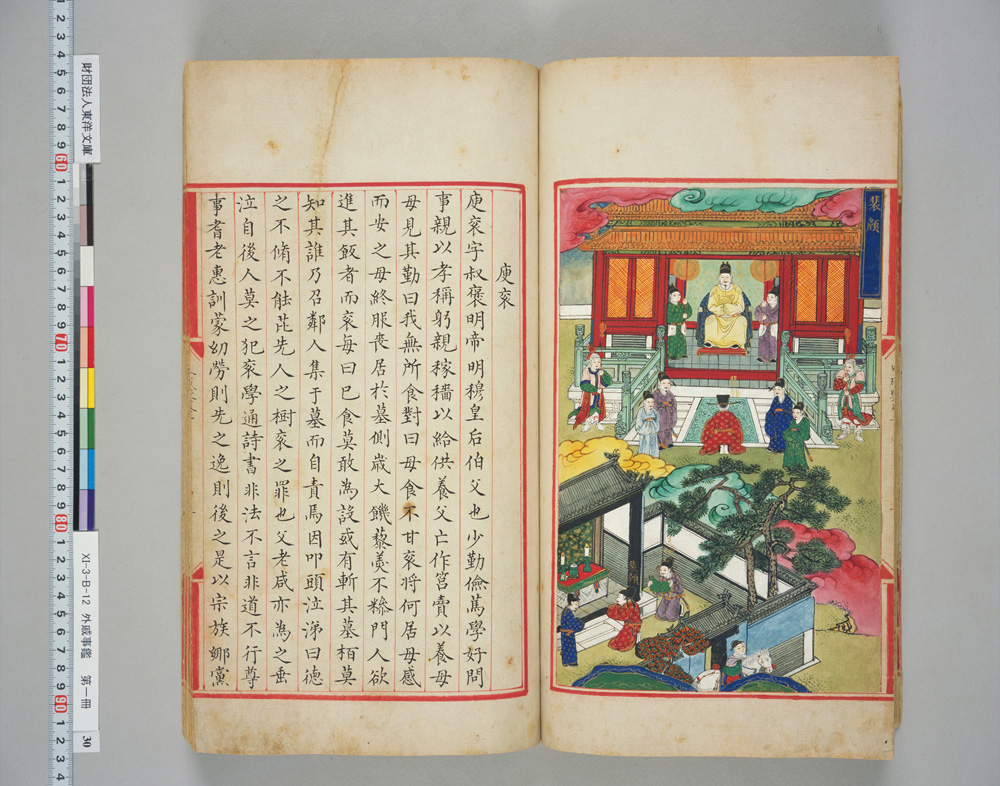 裴頠
裴頠
庾袞
庾袞字叔褒明帝明穆皇后伯父也少勤儉篤學好問
事親以孝稱躬親稼穡以給供養父亡作筥賣以養母
母見其勤曰我無所食對曰母食不甘袞將何居母感
而安之母終服喪居於墓側歲大饑藜羹不糝門人欲
進其飯者而袞每曰已食莫敢為設或有斬其墓栢莫
知其誰乃召鄰人集于墓而自責焉因叩頭泣涕曰德
之不脩不能庇先人之樹袞之罪也父老咸亦為之垂
泣自後人莫之犯袞學通詩書非法不言非道不行尊
事耆老惠訓蒙幼勞則先之逸則後之是以宗族鄉黨
財団法人東洋文庫
XI-3-B-12 外戚事鑑 第一冊
30
2 3 4 5 6 7 8 9 60 1 2 3 4 5 6 7 8 9 70 1 2 3 4 5 6 7 8 9 80 1 2 3 4 5 6 7 8 9 90 1 2 3 4